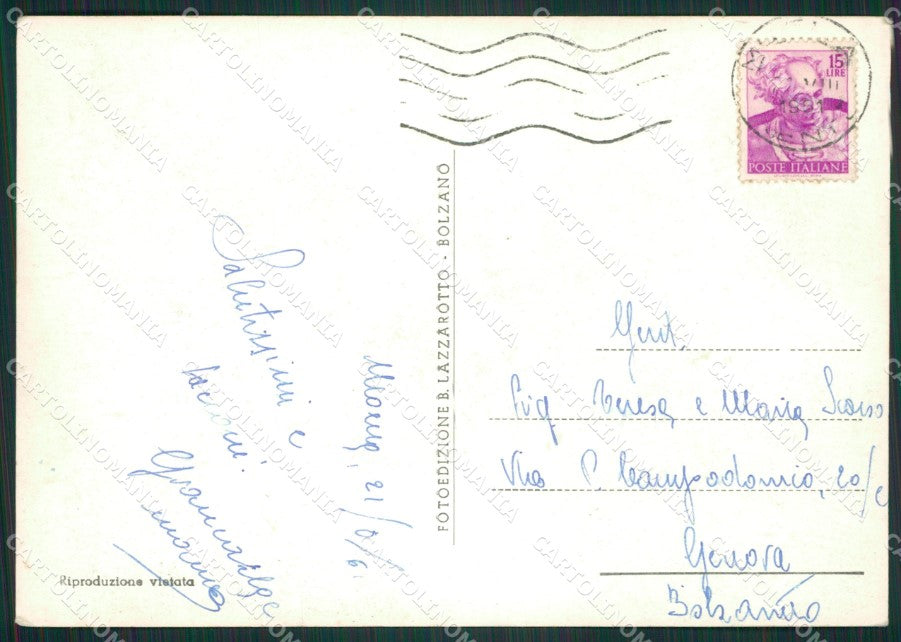 15
LIRE
VIII
POSTE ITALIANE
FOTOEDIZIONE B. LAZZAROTTO - BOLZANO
Salutissimi e
bacioni
Gent.
Sig Teresa e Maria
Via P. Campodonico, 20/
Genova
Riproduzione vietata
CARTOLINOMANIA